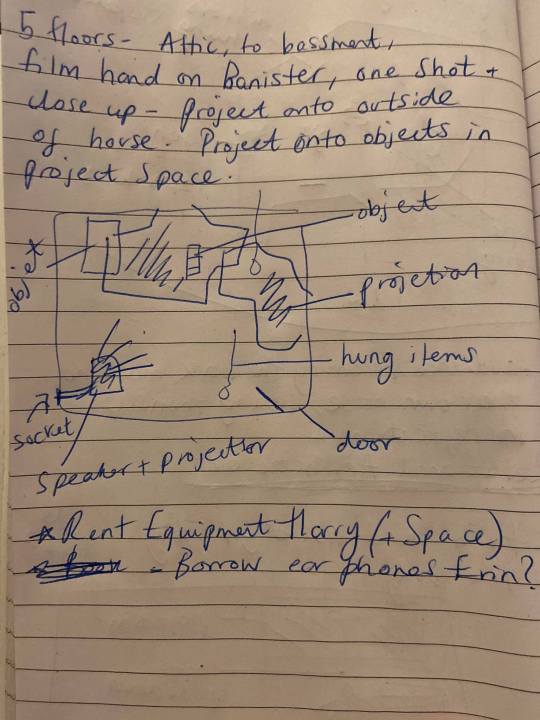 5 floors - Attic, to bassment,
film hand on Banister, one shot +
close up - project onto outside
of horse. Project onto objects in
project space.
object
object
projetion
hung items
socket
door
speaker + projecttor
* Rent Equipment Harry (+ Space)
- Borrow ear phones Erin?